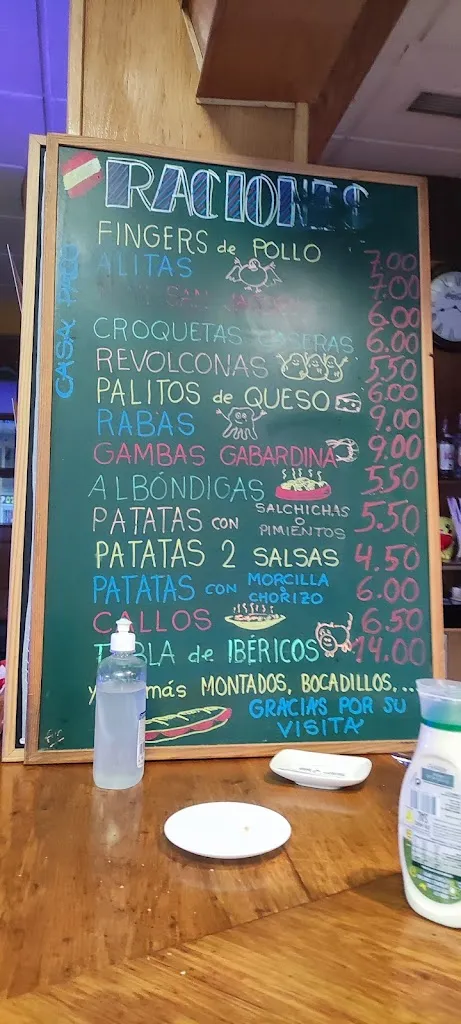 RACIONES
CASA PACO
FINGERS de POLLO 7.00
ALITAS 7.00
SAN 6.00
CROQUETAS CASERAS 6.00
REVOLCONAS 5.50
PALITOS de QUESO 6.00
RABAS 9.00
GAMBAS GABARDINA 9.00
ALBÓNDIGAS 5.50
PATATAS CON SALCHICHAS O PIMIENTOS 5.50
PATATAS 2 SALSAS 4.50
PATATAS CON MORCILLA O CHORIZO 6.00
CALLOS 6.50
TABLA de IBÉRICOS 14.00
y además MONTADOS, BOCADILLOS,...
GRACIAS POR SU
VISITA